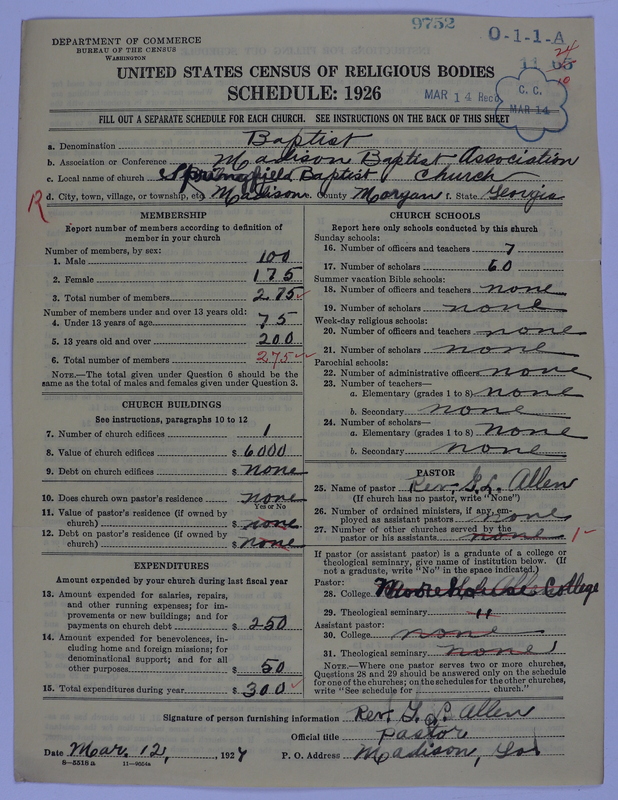 9752
O-1-1-A
DEPARTMENT OF COMMERCE
BUREAU OF THE CENSUS
WASHINGTON
24
11 05
10
UNITED STATES CENSUS OF RELIGIOUS BODIES
SCHEDULE: 1926
MAR 14 Recd
C. C.
MAR 14
FILL OUT A SEPARATE SCHEDULE FOR EACH CHURCH. SEE INSTRUCTIONS ON THE BACK OF THIS SHEET
a. Denomination Baptist
b. Association or Conference Madison Baptist Association
c. Local name of church Springfield Baptist Church
R d. City, town, village, or township, etc. Madison e. County Morgan f. State Georgia
MEMBERSHIP
Report number of members according to definition of
member in your church
Number of members, by sex:
1. Male 100
2. Female 175
3. Total number of members 275
Number of members under and over 13 years old:
4. Under 13 years of age 75
5. 13 years old and over 200
6. Total number of members 275
NOTE.—The total given under Question 6 should be the
same as the total of males and females given under Question 3.
CHURCH BUILDINGS
See instructions, paragraphs 10 to 12
7. Number of church edifices 1
8. Value of church edifices $ 6000
9. Debt on church edifices $ none
10. Does church own pastor's residence none
Yes or No
11. Value of pastor's residence (if owned by
church) $ none
12. Debt on pastor's residence (if owned by
church) $ none
EXPENDITURES
Amount expended by your church during last fiscal year
13. Amount expended for salaries, repairs,
and other running expenses; for im-
provements or new buildings; and for
payments on church debt $ 250
14. Amount expended for benevolences, in-
cluding home and foreign missions; for
denominational support; and for all
other purposes $ 50
15. Total expenditures during year $ 300
CHURCH SCHOOLS
Report here only schools conducted by this church
Sunday schools:
16. Number of officers and teachers 7
17. Number of scholars 60
Summer vacation Bible schools:
18. Number of officers and teachers none
19. Number of scholars none
Week-day religious schools:
20. Number of officers and teachers none
21. Number of scholars none
Parochial schools:
22. Number of administrative officers none
23. Number of teachers—
a. Elementary (grades 1 to 8) none
b. Secondary none
24. Number of scholars—
a. Elementary (grades 1 to 8) none
b. Secondary none
PASTOR
25. Name of pastor Rev. G. L. Allen
(If church has no pastor, write "None")
26. Number of ordained ministers, if any, em-
ployed as assistant pastors none
27. Number of other churches served by the
pastor or his assistants none 1-
If pastor (or assistant pastor) is a graduate of a college or
theological seminary, give name of institution below. (If
not a graduate, write "No" in the space indicated.)
Pastor:
28. College College
29. Theological seminary "
Assistant pastor:
30. College none
31. Theological seminary none
NOTE.—Where one pastor serves two or more churches,
Questions 28 and 29 should be answered only on the schedule
for one of the churches; on the schedules for the other churches,
write "See schedule for church."
Signature of person furnishing information Rev. G. L. Allen
Official title Pastor
Date Mar. 12, 1927 P. O. Address Madison, Ga
8—5518 a 11—9654a